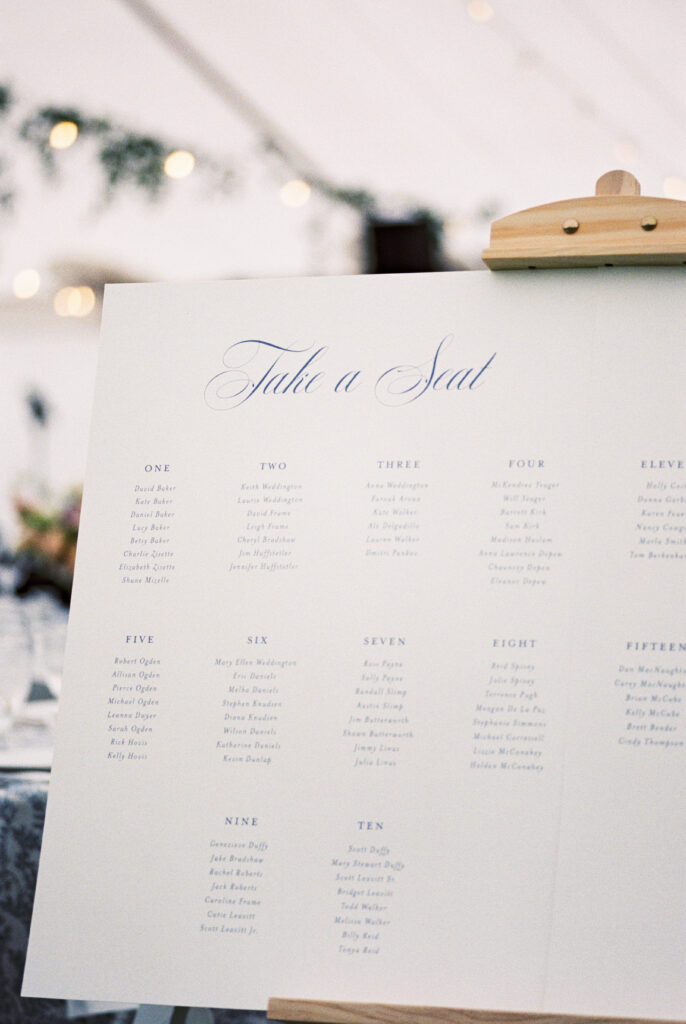 Take a Seat
ONE
David Baker
Kate Baker
Daniel Baker
Lucy Baker
Betsy Baker
Charlie Zisette
Elizabeth Zisette
Shane Mizelle
TWO
Keith Weddington
Laurie Weddington
David Frame
Leigh Frame
Cheryl Bradshaw
Jim Huffstetler
Jennifer Huffstetler
THREE
Anna Weddington
Kate Walker
Lauren Walker
FOUR
McKendree Yeager
Will Yeager
Barrett Kirk
Sam Kirk
Madison Haslam
Anna Lawrence Depew
Chauncey Depew
Eleanor Depew
ELEVE
Holly
Donna
Karen
Nancy
Marla Smit
Tom
FIVE
Robert Ogden
Allison Ogden
Pierce Ogden
Michael Ogden
Leanna Dwyer
Sarah Ogden
Rick Hovis
Kelly Hovis
SIX
Mary Ellen Weddington
Eric Daniels
Melba Daniels
Stephen Knudsen
Diana Knudsen
Wilson Daniels
Katherine Daniels
Kevin Dunlap
SEVEN
Ross Payne
Sally Payne
Randall Slimp
Austin Slimp
Jim Butterworth
Shawn Butterworth
Jimmy Livas
Julia Livas
EIGHT
Reid Spivey
Julie Spivey
Terrence Pugh
Meagan De La Paz
Stephanie Simmons
Michael
Lizzie McConahey
Holden McConahey
FIFTEEN
Dan MacNaught
Carey MacNaught
Brian McCabe
Kelly McCabe
Brett Bender
Cindy Thompson
NINE
Genevieve Duffy
Jake Bradshaw
Rachel Roberts
Jack Roberts
Caroline Frame
Catie Leavitt
Scott Leavitt Jr.
TEN
Scott Duffy
Mary Stewart Duffy
Scott Leavitt Sr.
Bridget Leavitt
Todd Walker
Melissa Walker
Billy Reid
Tonya Reid